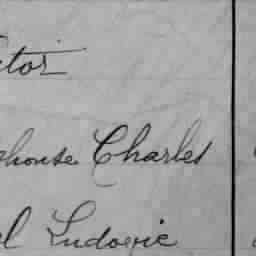 ctor
phonse Charles
el Ludovic